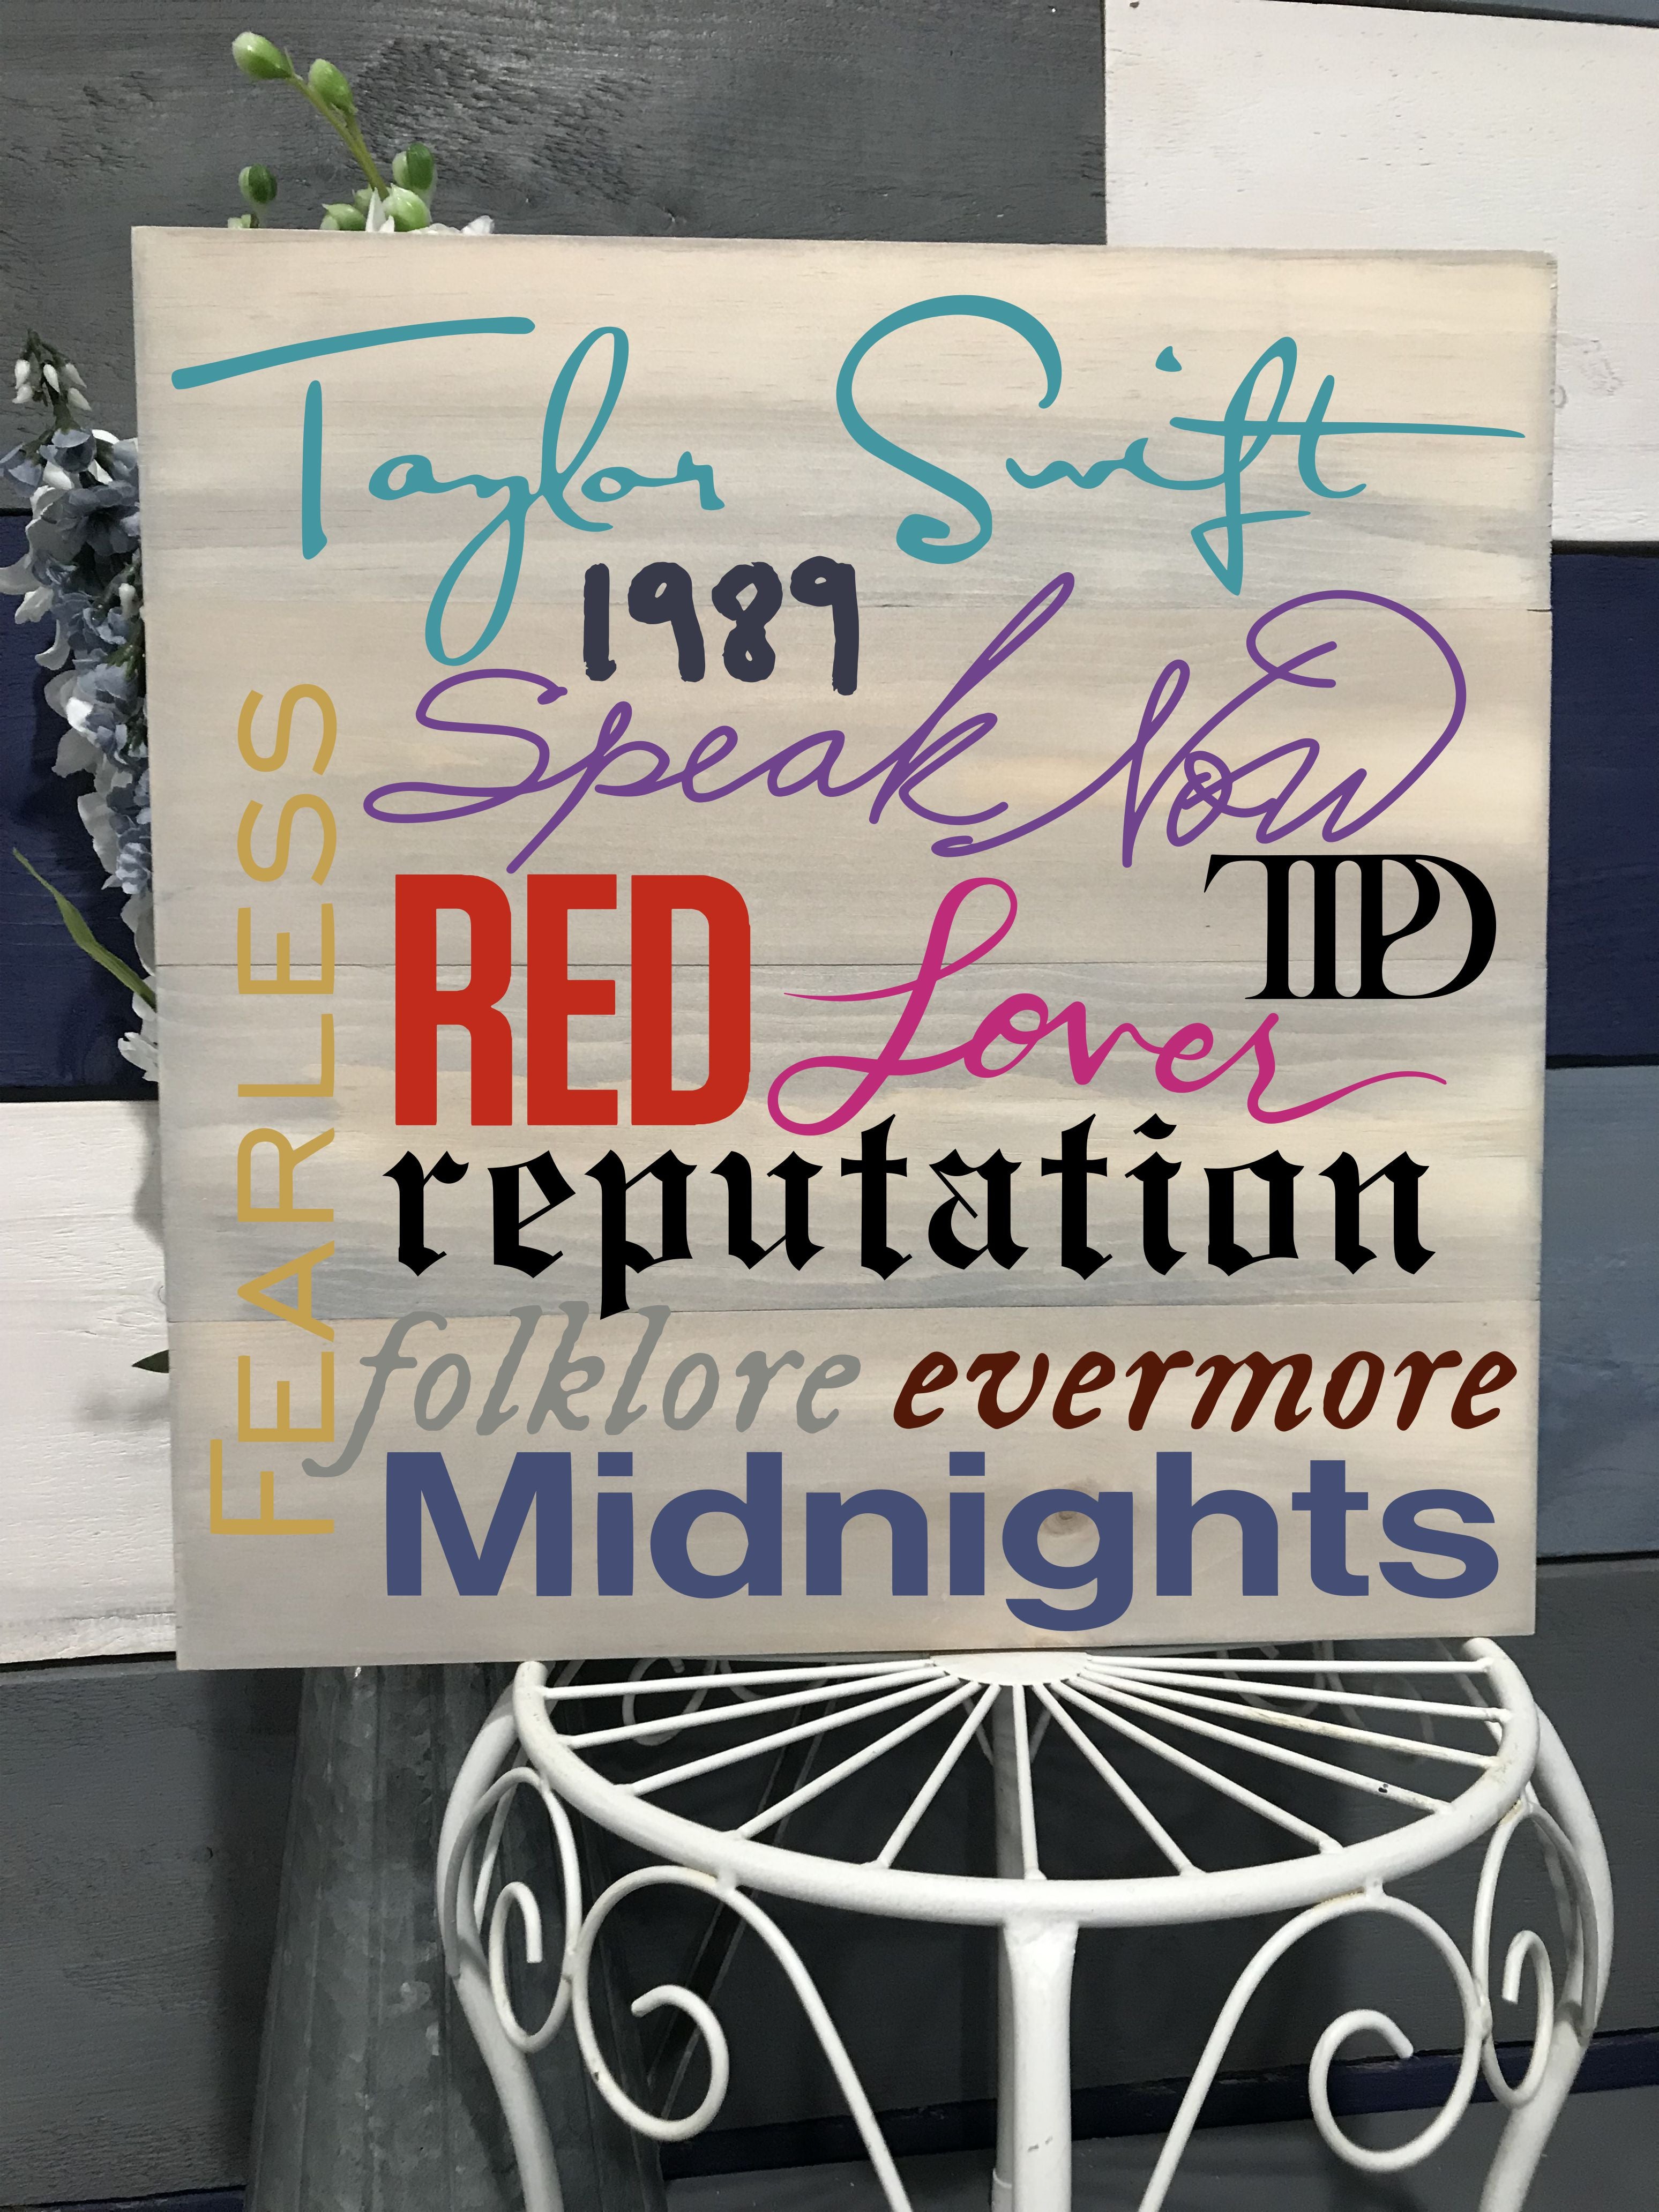 Taylor Swift
1989
Speak Now
FEARLESS
RED Lover
TTPD
reputation
folklore evermore
Midnights